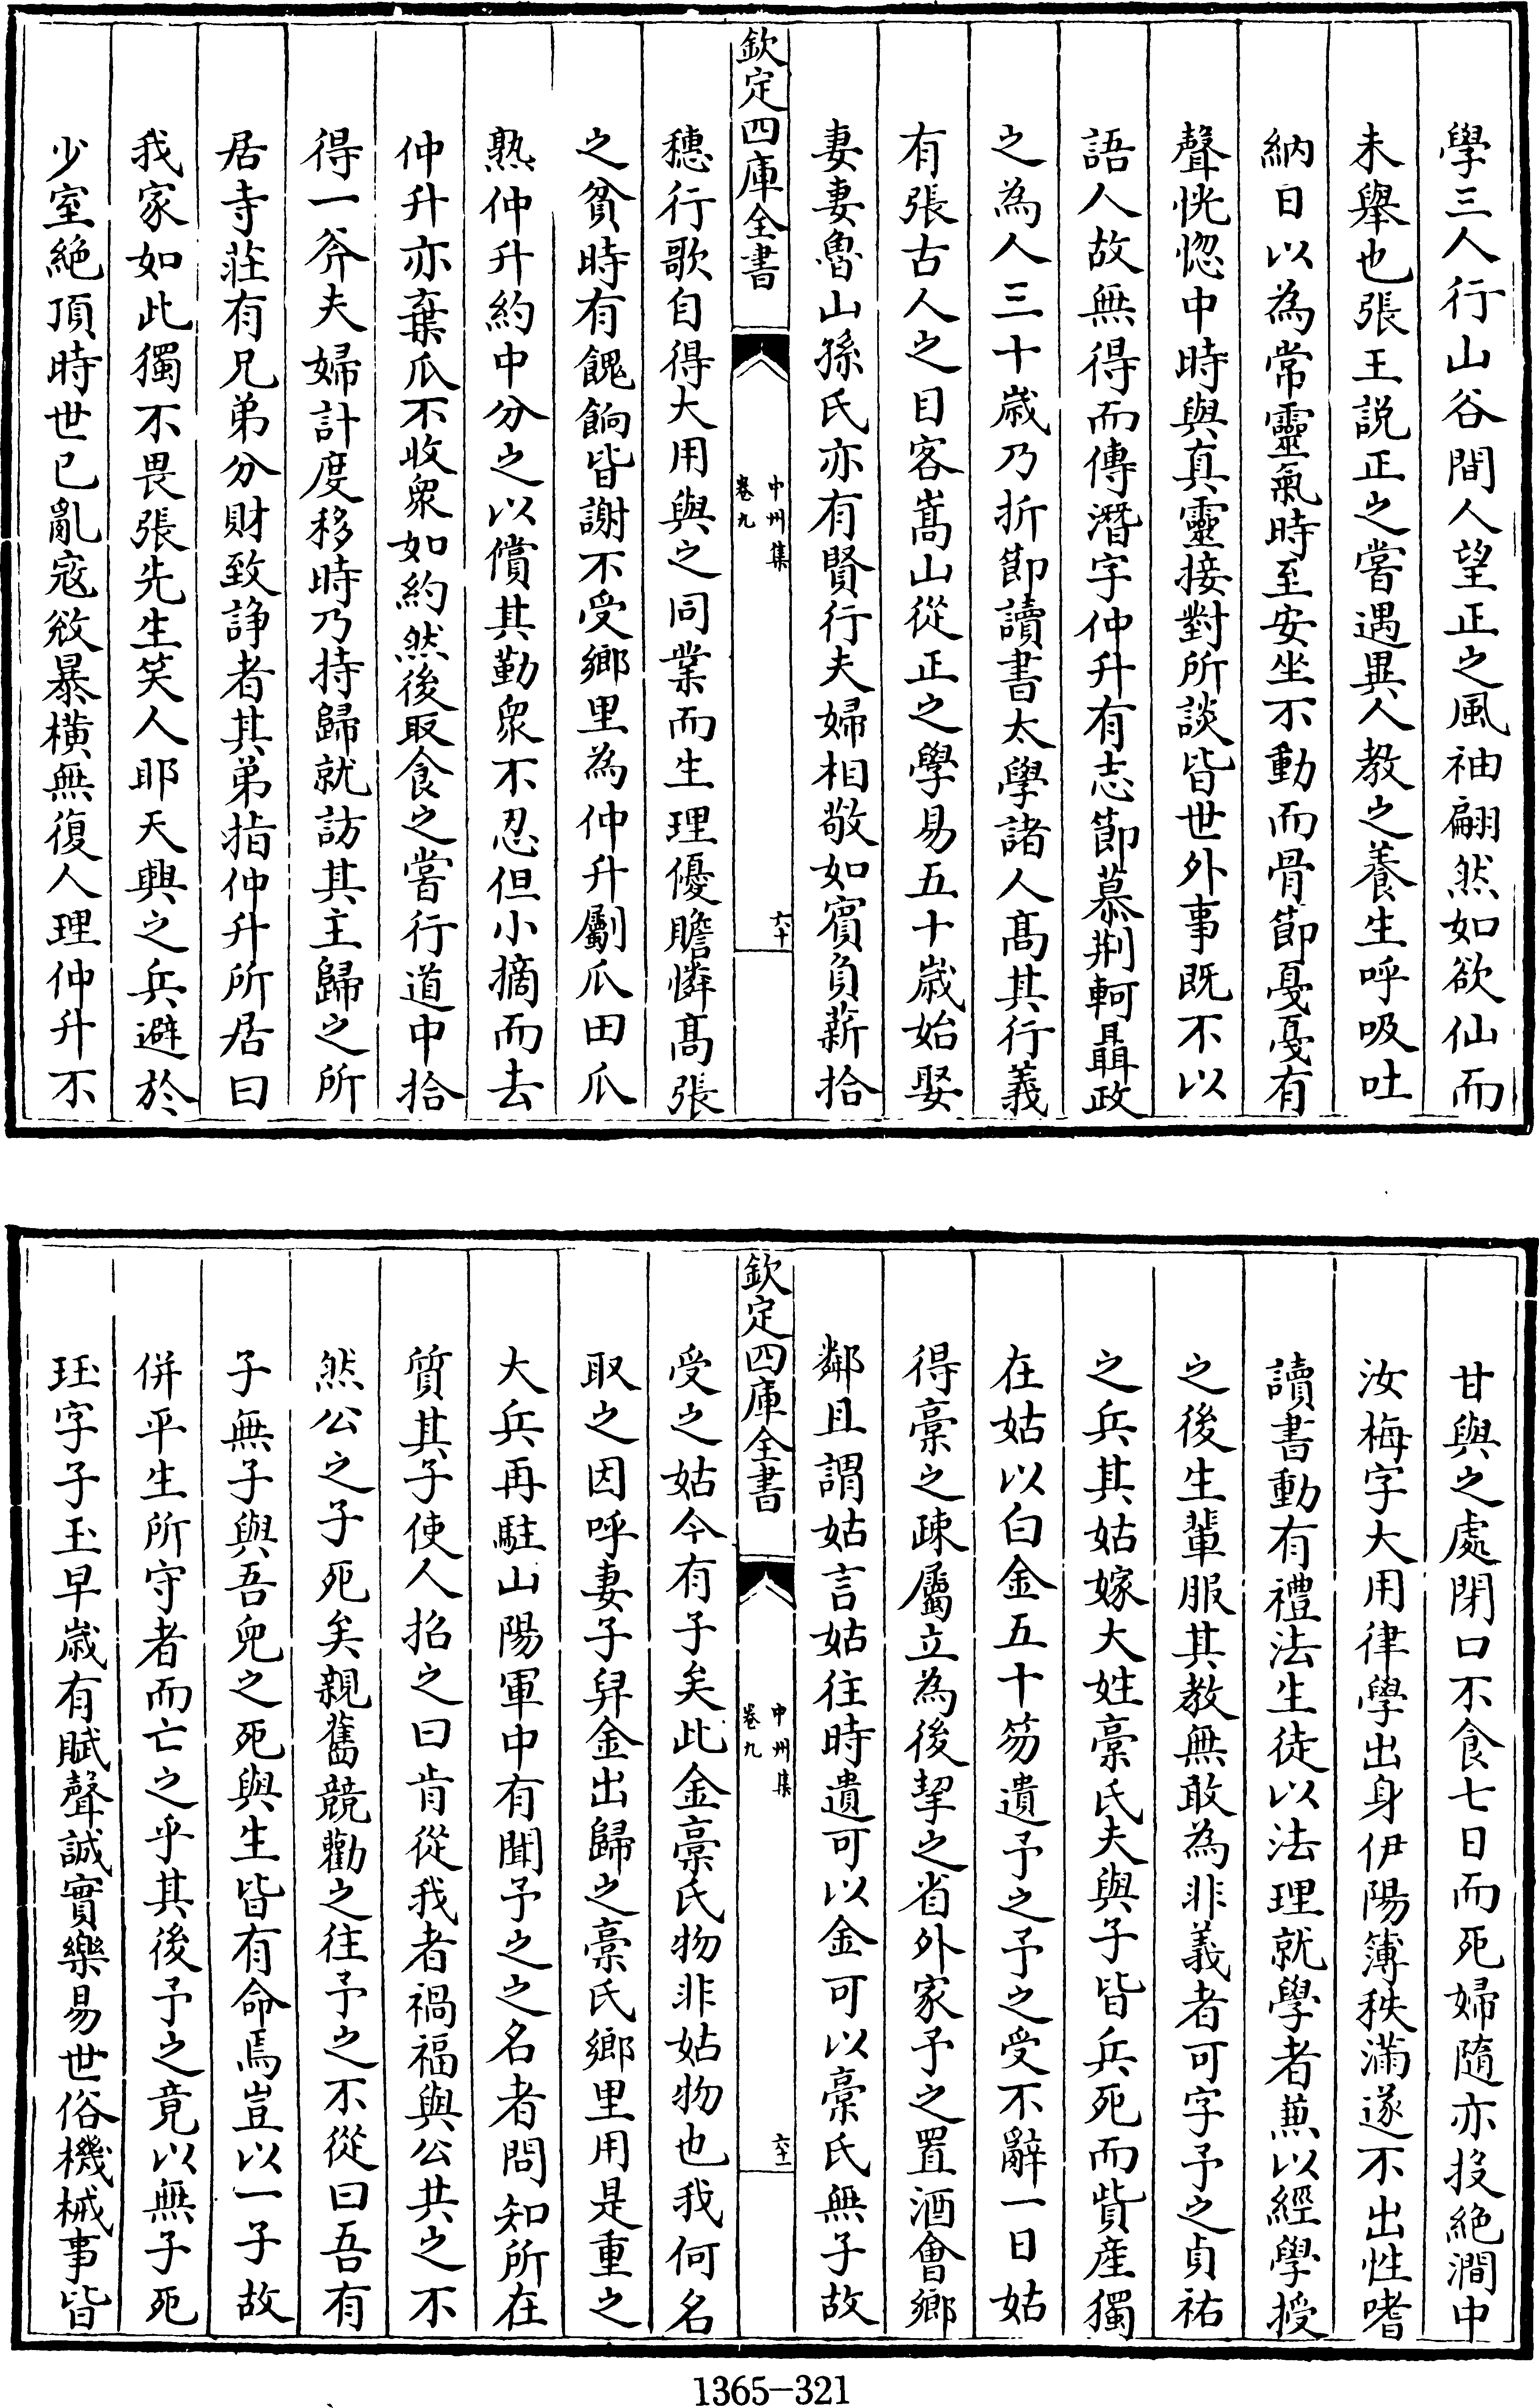 學三人行山谷間人望正之風袖翩然如欲仙而
未舉也張王説正之嘗遇異人教之養生呼吸吐
納日以為常靈氣時至安坐不動而骨節戞戞有
聲恍惚中時與真靈接對所談皆世外事既不以
語人故無得而傳潛字仲升有志節慕荆軻聶政
之為人三十歳乃折節讀書太學諸人髙其行義
有張古人之目客嵩山從正之學易五十歳始娶
妻妻魯山孫氏亦有賢行夫婦相敬如賓負薪拾
欽定四庫全書
中州集
卷九
六十
穗行歌自得大用與之同業而生理優贍憐髙張
之貧時有餽餉皆謝不受鄉里為仲升劚瓜田瓜
熟仲升約中分之以償其勤衆不忍但小摘而去
仲升亦棄瓜不收衆如約然後取食之嘗行道中拾
得一斧夫婦計度移時乃持歸就訪其主歸之所
居寺莊有兄弟分財致諍者其弟指仲升所居曰
我家如此獨不畏張先生笑人耶天興之兵避於
少室絶頂時世已亂寇攽暴横無復人理仲升不
甘與之處閉口不食七日而死婦隨亦投絶澗中
汝梅字大用律學出身伊陽簿秩滿遂不出性嗜
讀書動有禮法生徒以法理就學者兼以經學授
之後生輩服其教無敢為非義者可字予之貞祐
之兵其姑嫁大姓槀氏夫與子皆兵死而貲産獨
在姑以白金五十笏遺予之予之受不辭一日姑
得槀之疎屬立為後挈之省外家予之置酒會鄉
鄰且謂姑言姑往時遺可以金可以槀氏無子故
欽定四庫全書
中州集
卷九
六十一
受之姑今有子矣此金槀氏物非姑物也我何名
取之因呼妻子舁金出歸之槀氏鄉里用是重之
大兵再駐山陽軍中有聞予之之名者問知所在
質其子使人招之曰肯從我者禍福與公共之不
然公之子死矣親舊競勸之往予之不從曰吾有
子無子與吾兒之死與生皆有命焉豈以一子故
併平生所守者而亡之乎其後予之竟以無子死
珏字子玉早歳有賦聲誠實樂易世俗機械事皆
1365-321